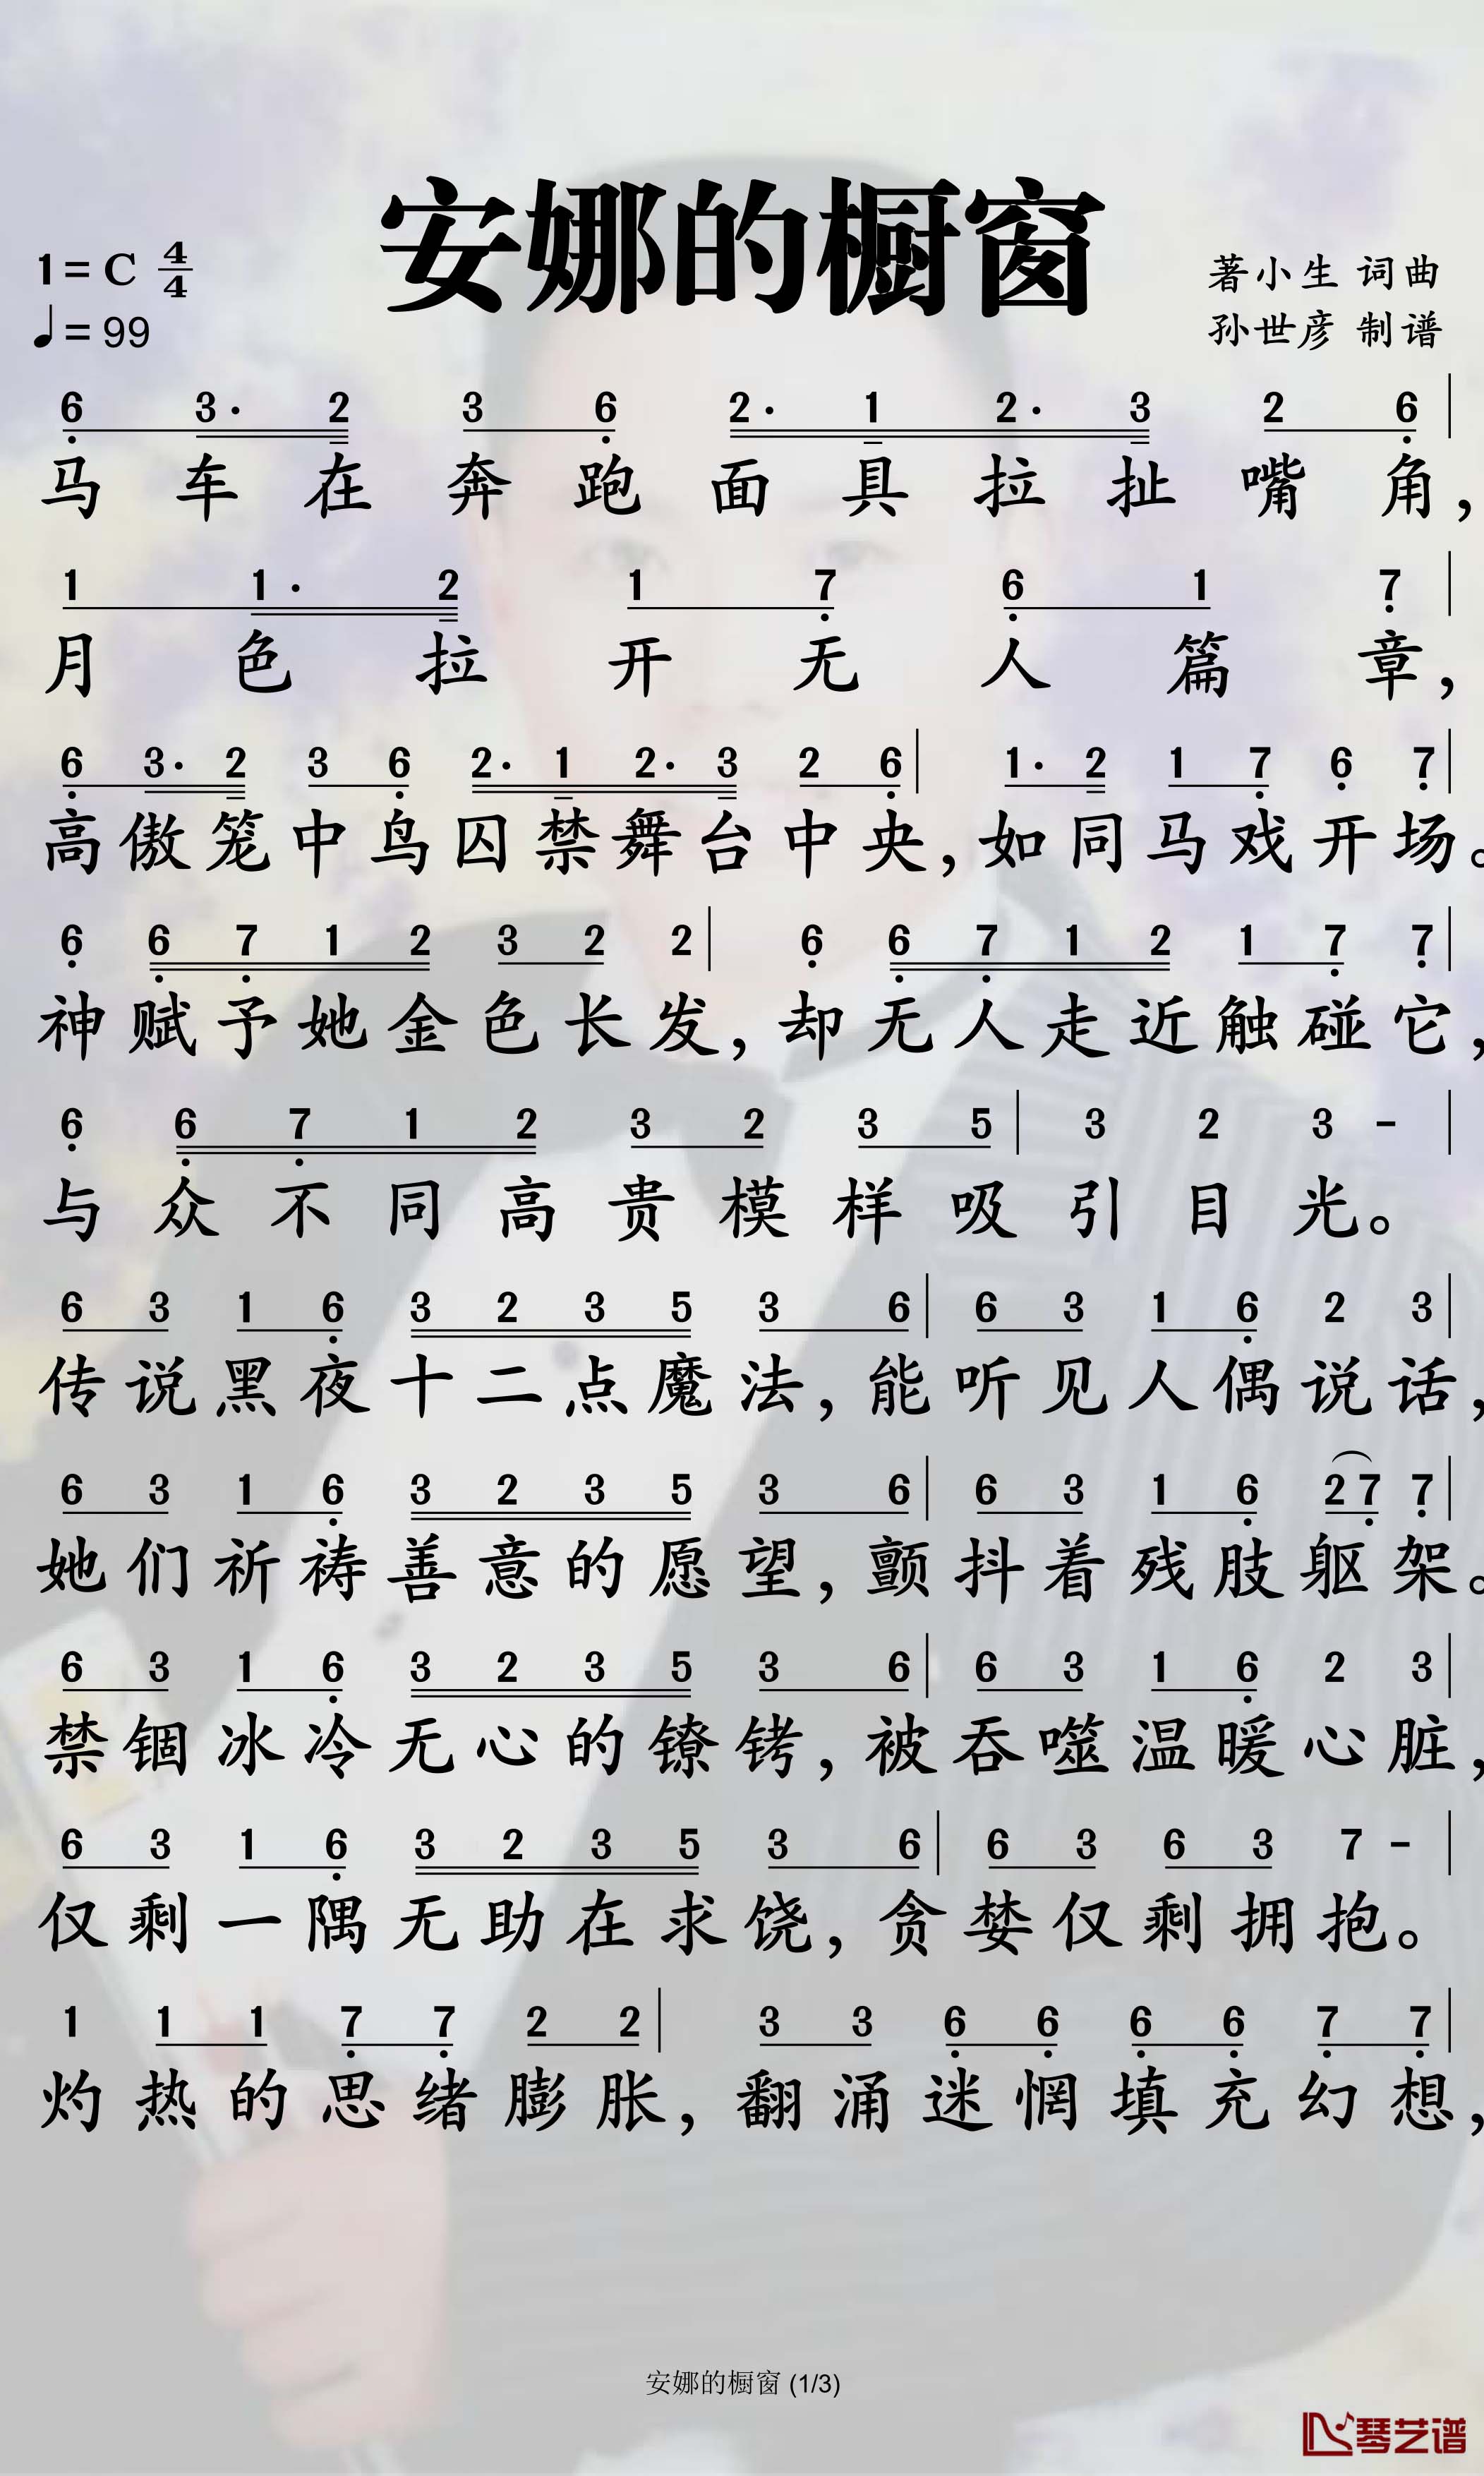 安娜的橱窗
1=C 4/4
♩=99
著小生 词曲
孙世彦 制谱
6 3· 2 3 6 2· 1 2· 3 2 6 |
马车在奔跑面具拉扯嘴角，
1 1· 2 1 7 6 1 7 |
月色拉开无人篇章，
6 3· 2 3 6 2· 1 2· 3 2 6 | 1· 2 1 7 6 7 |
高傲笼中鸟囚禁舞台中央，如同马戏开场。
6 6 7 1 2 3 2 2 | 6 6 7 1 2 1 7 7 |
神赋予她金色长发，却无人走近触碰它，
6 6 7 1 2 3 2 3 5 | 3 2 3 - |
与众不同高贵模样吸引目光。
6 3 1 6 3 2 3 5 3 6 | 6 3 1 6 2 3 |
传说黑夜十二点魔法，能听见人偶说话，
6 3 1 6 3 2 3 5 3 6 | 6 3 1 6 2 7 7 |
她们祈祷善意的愿望，颤抖着残肢躯架。
6 3 1 6 3 2 3 5 3 6 | 6 3 1 6 2 3 |
禁锢冰冷无心的镣铐，被吞噬温暖心脏，
6 3 1 6 3 2 3 5 3 6 | 6 3 6 3 7 - |
仅剩一隅无助在求饶，贪婪仅剩拥抱。
1 1 1 7 7 2 2 | 3 3 6 6 6 6 7 7 |
灼热的思绪膨胀，翻涌迷惘填充幻想，
安娜的橱窗 (1/3)
琴艺谱